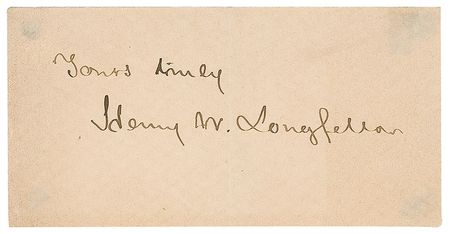 Yours truly
Henry W. Longfellow